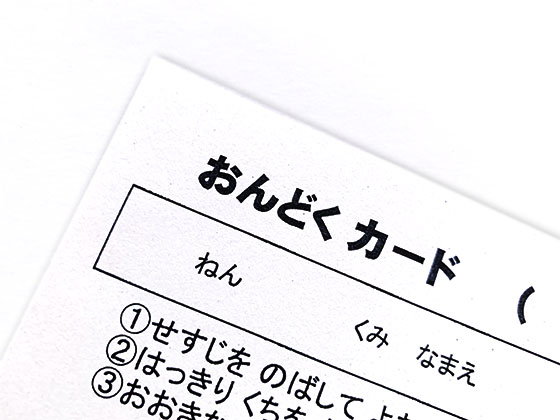 おんどく カード (
ねん くみ なまえ
①せすじを のばして よ
②はっきり くちを
③おおきな